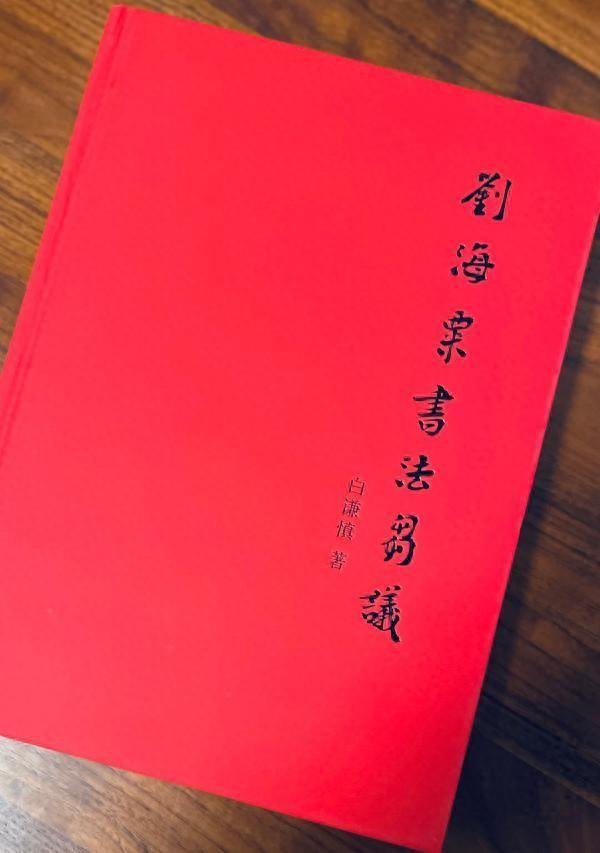 劉海粟書法芻議
白谦慎 著